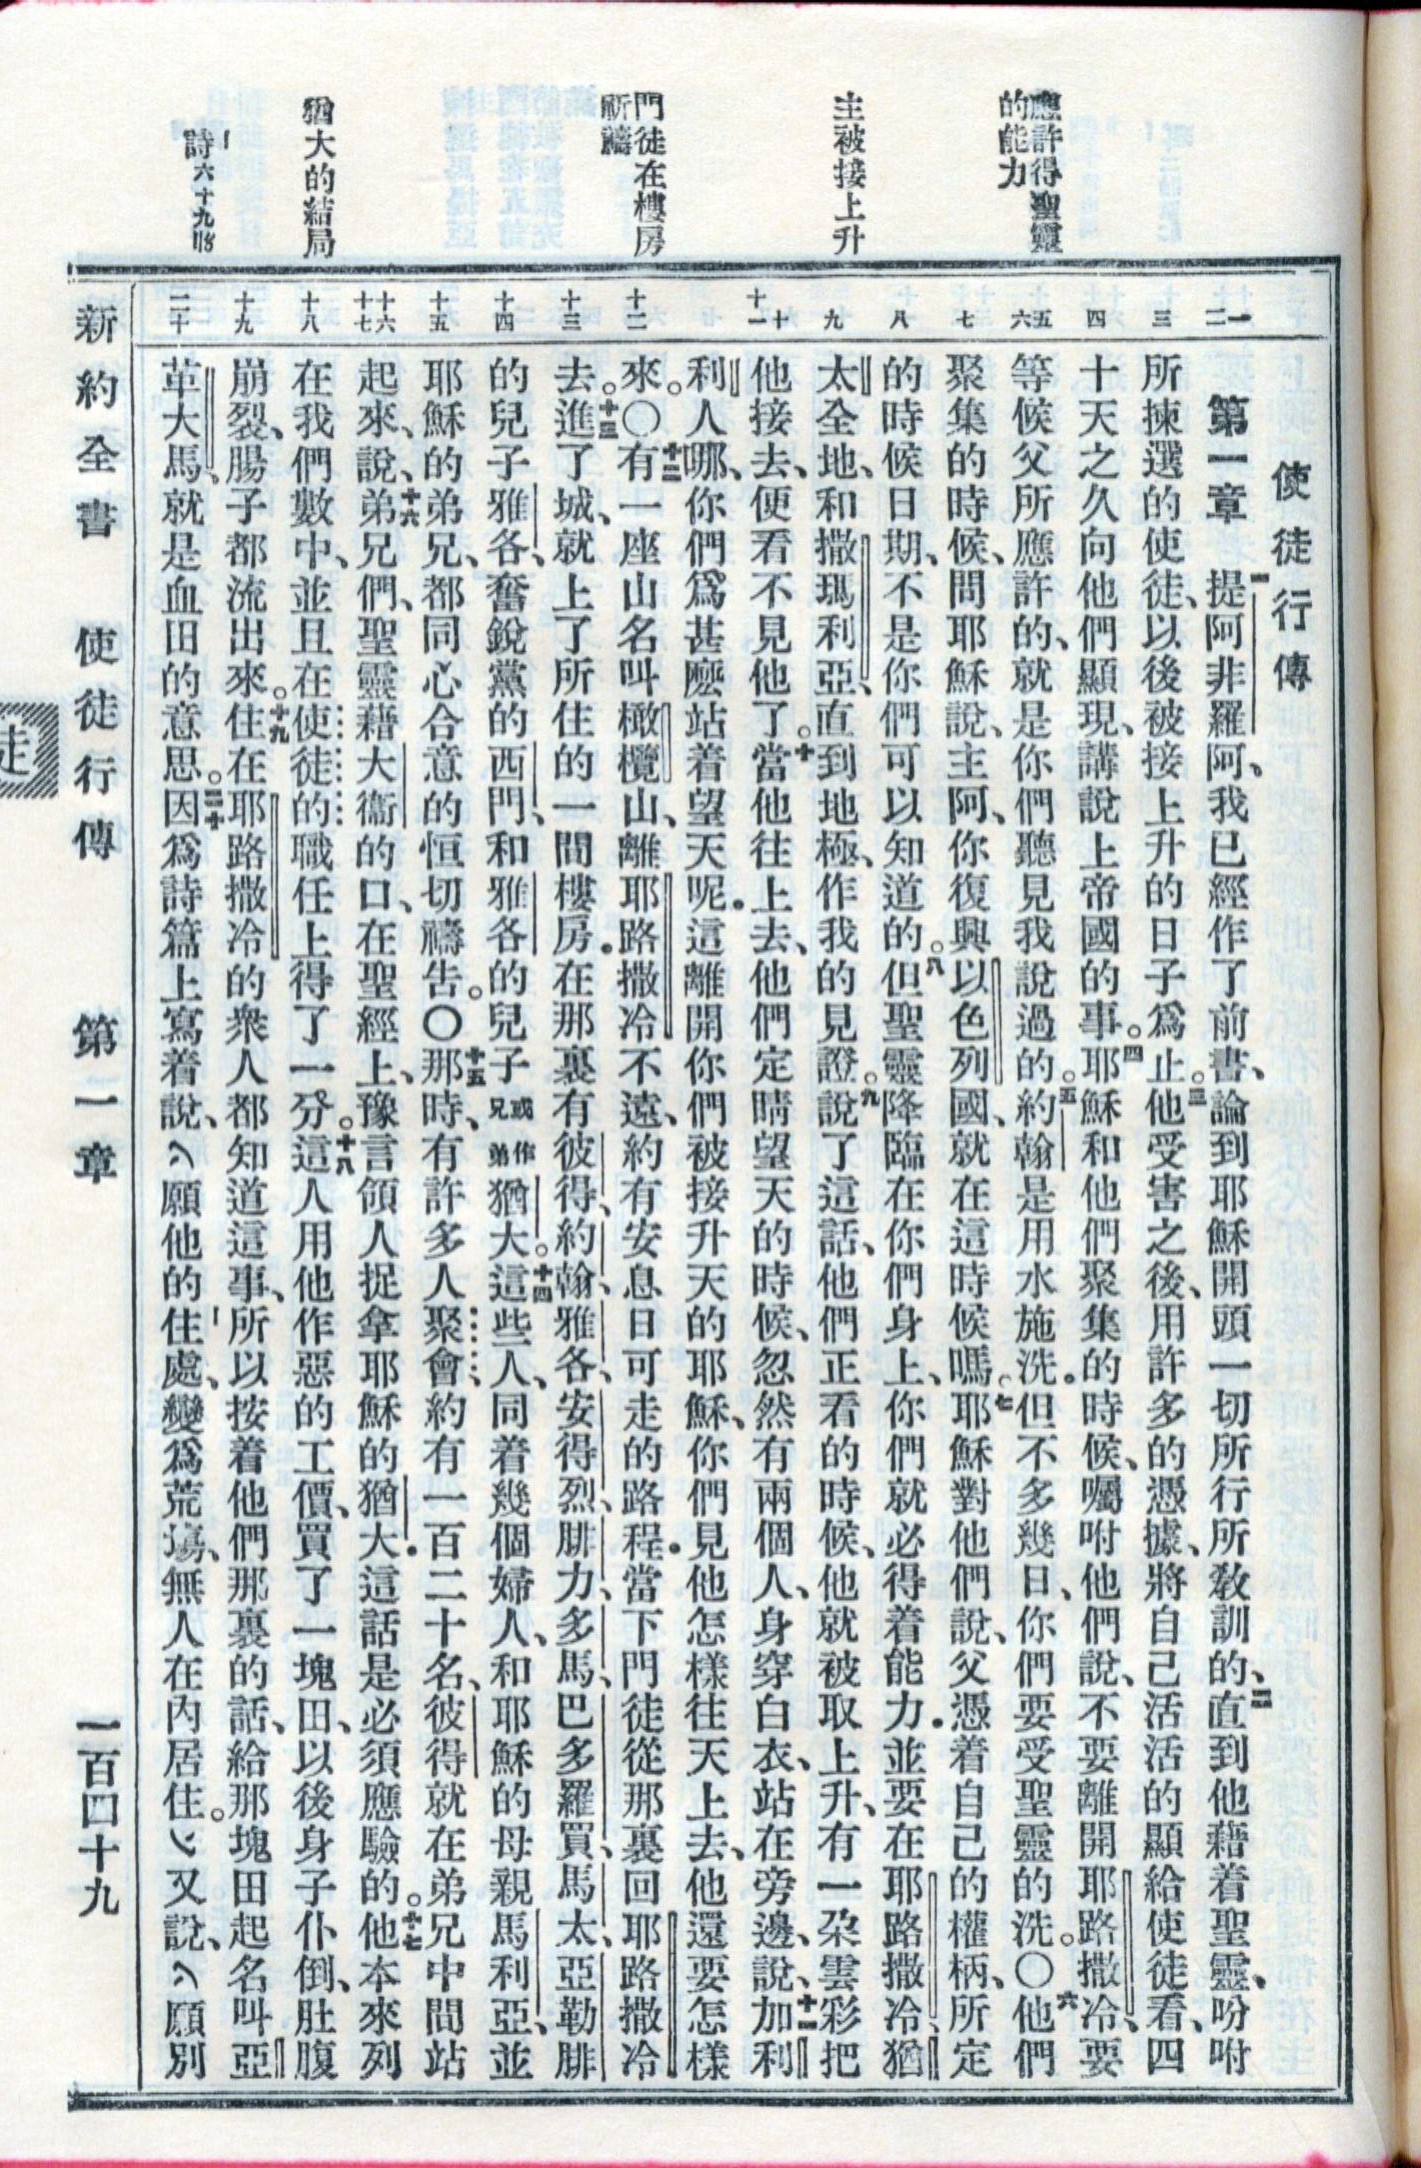 應許得聖靈
的能力
主被接上升
門徒在樓房
祈禱
猶大的結局
詩六十九
一
二
三
四
五
六
七
八
九
十
十一
十二
十三
十四
十五
十六
十七
十八
十九
二十
使徒行傳
第一章 一提阿非羅阿、我已經作了前書、論到耶穌開頭一切所行所教訓的、二直到他藉着聖靈、吩咐
所揀選的使徒、以後被接上升的日子爲止。三他受害之後、用許多的憑據、將自己活活的顯給使徒看、四
十天之久向他們顯現、講說上帝國的事。四耶穌和他們聚集的時候、囑咐他們說、不要離開耶路撒冷、要
等候父所應許的、就是你們聽見我說過的。五約翰是用水施洗．但不多幾日、你們要受聖靈的洗。〇六他們
聚集的時候、問耶穌說、主阿、你復興以色列國、就在這時候嗎。七耶穌對他們說、父憑着自己的權柄、所定
的時候日期、不是你們可以知道的。八但聖靈降臨在你們身上、你們就必得着能力．並要在耶路撒冷、猶
太全地、和撒瑪利亞、直到地極、作我的見證。九說了這話、他們正看的時候、他就被取上升、有一朶雲彩把
他接去、便看不見他了。十當他往上去、他們定睛望天的時候、忽然有兩個人、身穿白衣、站在旁邊、說、十一加利
利人哪、你們爲甚麽站着望天呢．這離開你們被接升天的耶穌、你們見他怎樣往天上去、他還要怎樣
來。〇十二有一座山名叫橄欖山、離耶路撒冷不遠、約有安息日可走的路程．當下門徒從那裏回耶路撒冷
去。十三進了城、就上了所住的一間樓房．在那裏有彼得、約翰、雅各、安得烈、腓力、多馬、巴多羅買、馬太、亞勒腓
的兒子雅各、奮銳黨的西門、和雅各的兒子或作兄弟猶大。十四這些人、同着幾個婦人、和耶穌的母親馬利亞、並
耶穌的弟兄、都同心合意的恒切禱告。〇十五那時、有許多人聚會、約有一百二十名、彼得就在弟兄中間站
起來、說、十六弟兄們、聖靈藉大衞的口、在聖經上、豫言領人捉拿耶穌的猶大．這話是必須應驗的。十七他本來列
在我們數中、並且在使徒的職任上得了一分。十八這人用他作惡的工價、買了一塊田、以後身子仆倒、肚腹
崩裂、腸子都流出來。十九住在耶路撒冷的衆人都知道這事、所以按着他們那裏的話、給那塊田起名叫亞
革大馬、就是血田的意思。二十因爲詩篇上寫着說、『願他的住處、變爲荒塲、無人在內居住。』又說、『願別
新約全書 使徒行傳 第一章 一百四十九
徒